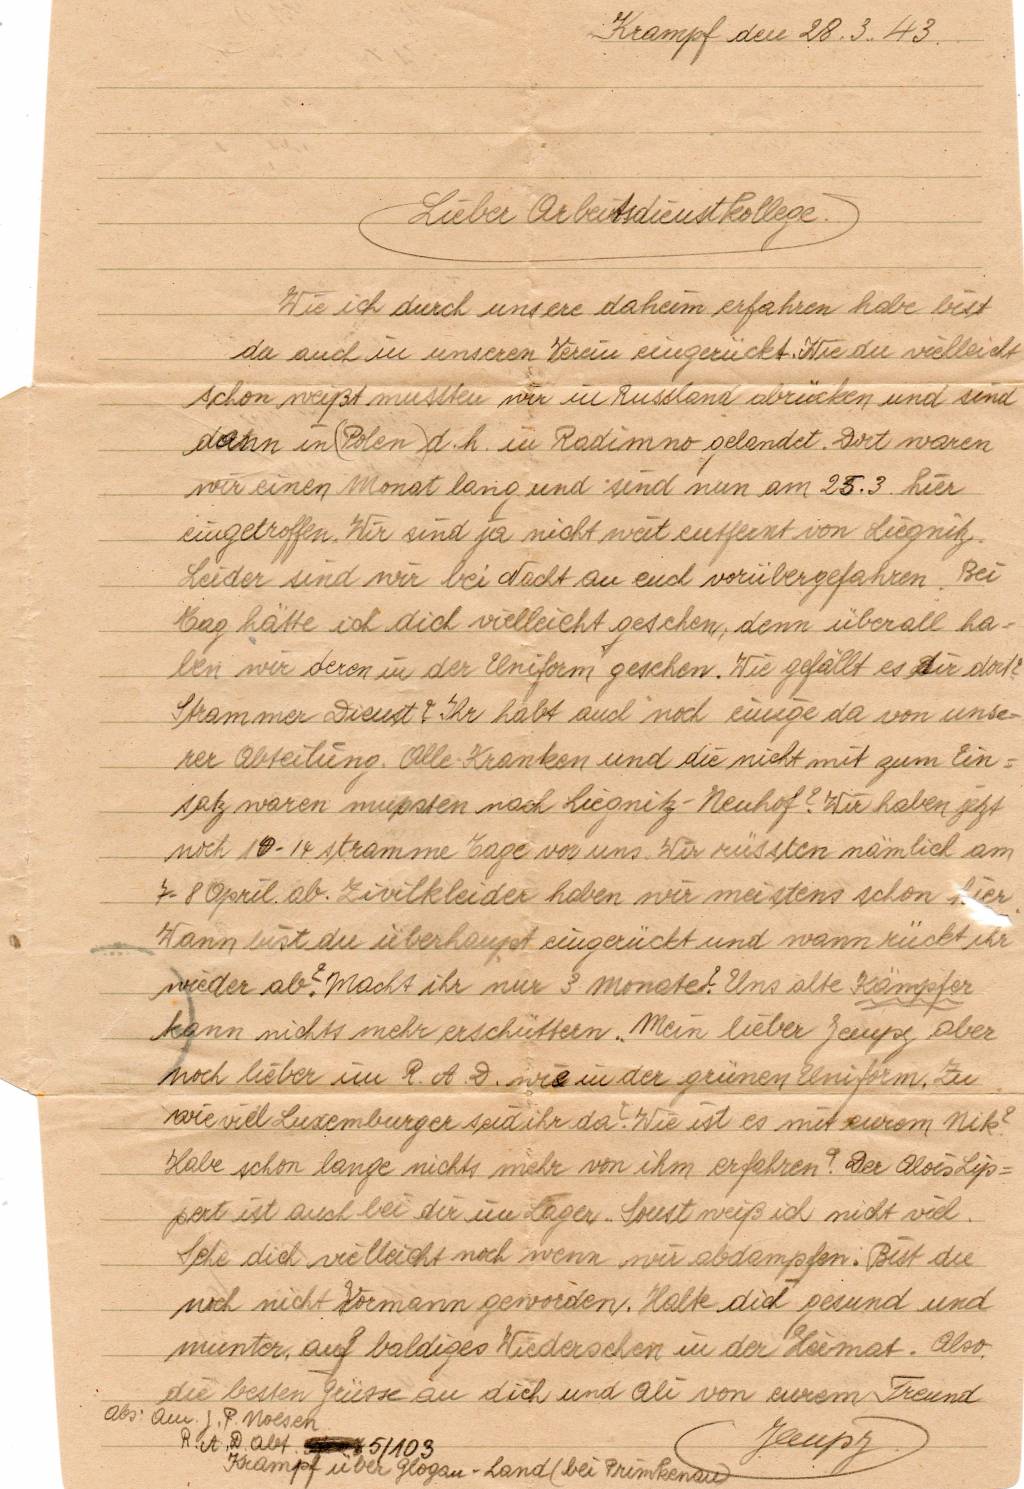 Krampf den 28.3.43.
Lieber Arbeitsdienstkollege.
Wie ich durch unsere daheim erfahren habe bist
du auch in unseren Verein eingerückt. Wie du vielleicht
schon weißt mussten wir in Russland abrücken und sind
dann in (Polen) d.h. in Radimno gelandet. Dort waren
wir einen Monat lang und sind nun am 25.3. hier
eingetroffen. Wir sind ja nicht weit entfernt von Liegnitz.
Leider sind wir bei Nacht an euch vorübergefahren. Bei
Tag hätte ich dich vielleicht gesehen, denn überall ha-
ben wir deren in der Uniform gesehen. Wie gefällt es dir dort?
Strammer Dienst? Ihr habt auch noch einige da von unse-
rer Abteilung. Alle Kranken und die nicht mit zum Ein=
satz waren mussten nach Liegnitz-Neuhof? Wir haben jetzt
noch 10-14 stramme Tage vor uns. Wir rüssten nämlich am
7-8 April. ab. Zivilkleider haben wir meistens schon hier.
Wann bist du überhaupt eingerückt und wann rückt ihr
wieder ab? Macht ihr nur 3 Monate? Uns alte Kämpfer
kann nichts mehr erschüttern. Mein lieber Jempy aber
noch lieber im R.A.D. wie in der grünen Uniform. Zu
wieviel Luxemburger seid ihr da? Wie ist es mit eurem Nik?
Habe schon lange nichts mehr von ihm erfahren? Der Alois Lip=
pert ist auch bei dir im Lager. Sonst weiß ich nicht viel.
Sehe dich vielleicht noch wenn wir abdampfen. Bist du
noch nicht Vormann geworden. Halte dich gesund und
munter, auf baldiges Wiedersehen in der Heimat. Also
die besten Grüsse an dich und Ali von eurem Freund
Jempy
Abs: Am. J.P. Noesen
R.A.D. Abt. 5/103
Krampf über Glogau-Land (bei Primkenau)